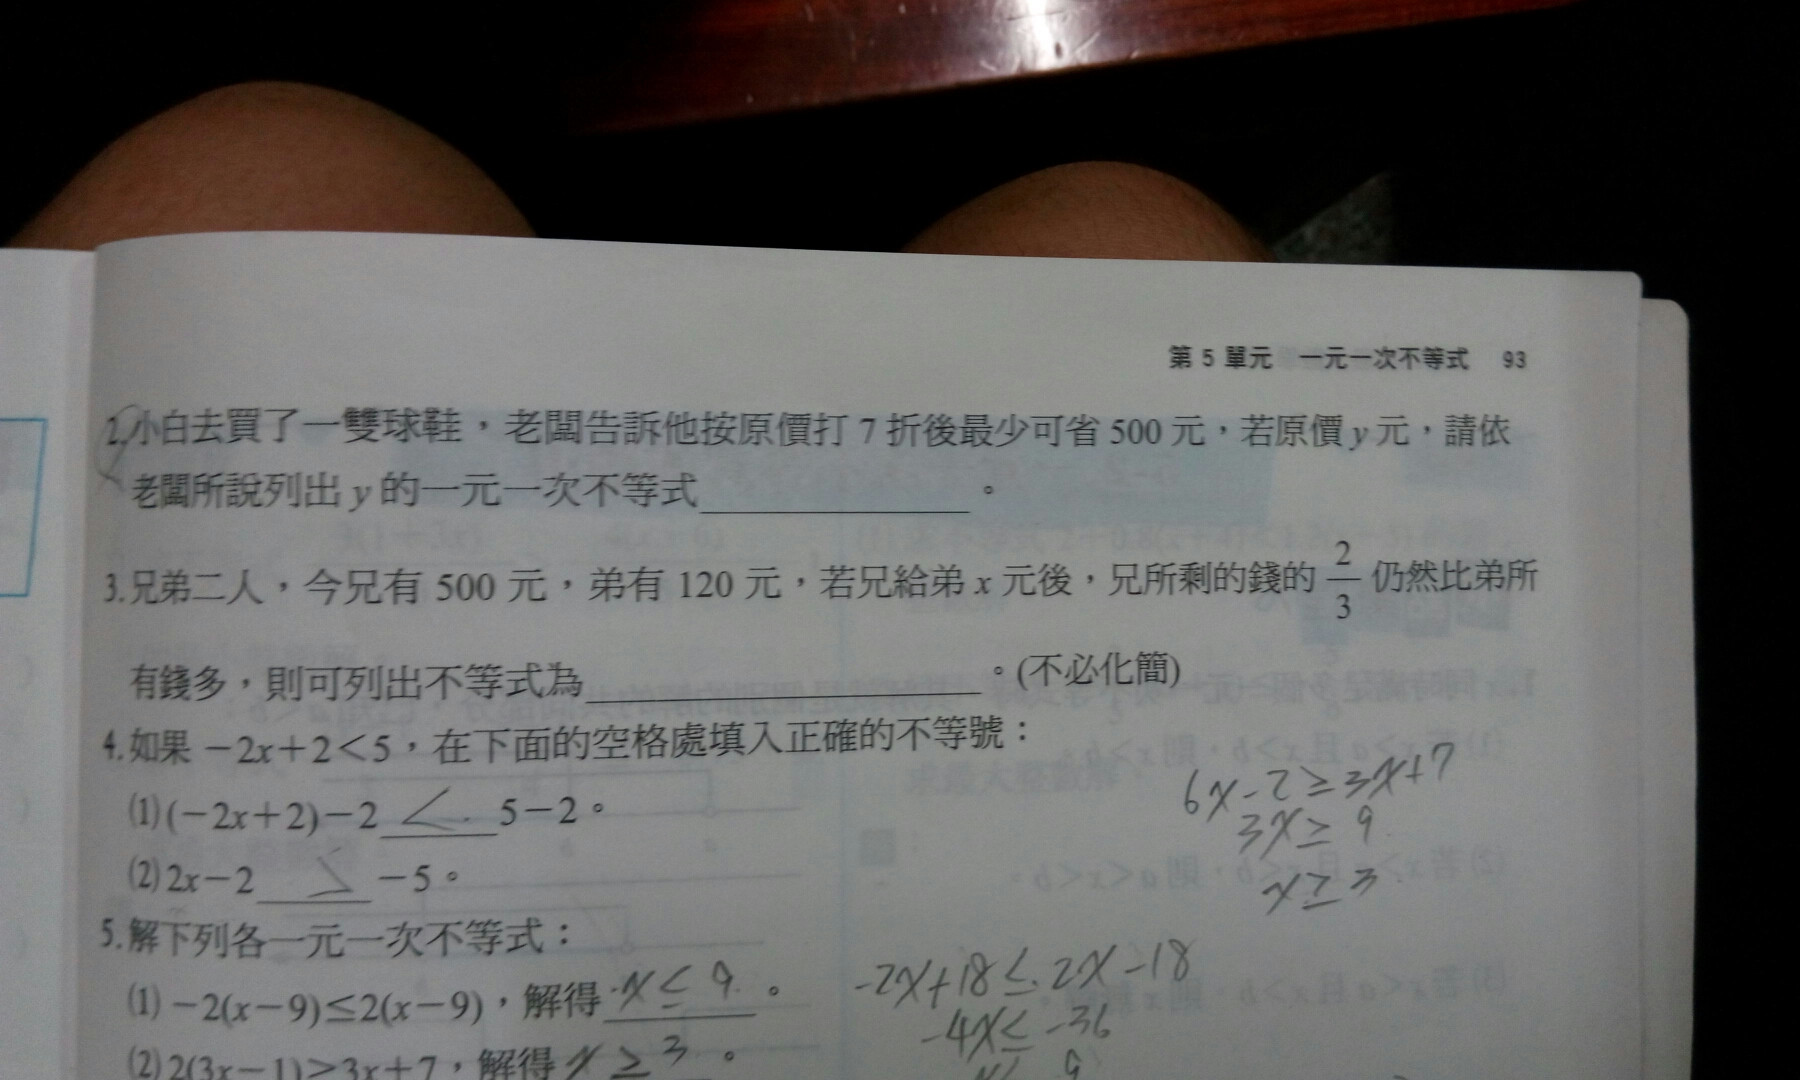 第 5 單元 一元一次不等式 93
2.小白去買了一雙球鞋，老闆告訴他按原價打 7 折後最少可省 500 元，若原價 y 元，請依
老闆所說列出 y 的一元一次不等式＿＿＿＿＿＿。
3.兄弟二人，今兄有 500 元，弟有 120 元，若兄給弟 x 元後，兄所剩的錢的 2/3 仍然比弟所
有錢多，則可列出不等式為＿＿＿＿＿＿＿＿。(不必化簡)
4.如果 −2x+2<5，在下面的空格處填入正確的不等號：
(1)(−2x+2)−2 < 5−2。
(2)2x−2 > −5。
5.解下列各一元一次不等式：
(1)−2(x−9)≤2(x−9)，解得 x ≤ 9。
(2)2(3x−1)>3x+7，解得 x ≥ 3。
6x-2≥3x+7
3x≥9
x≥3
-2x+18≤2x-18
-4x≤-36
9